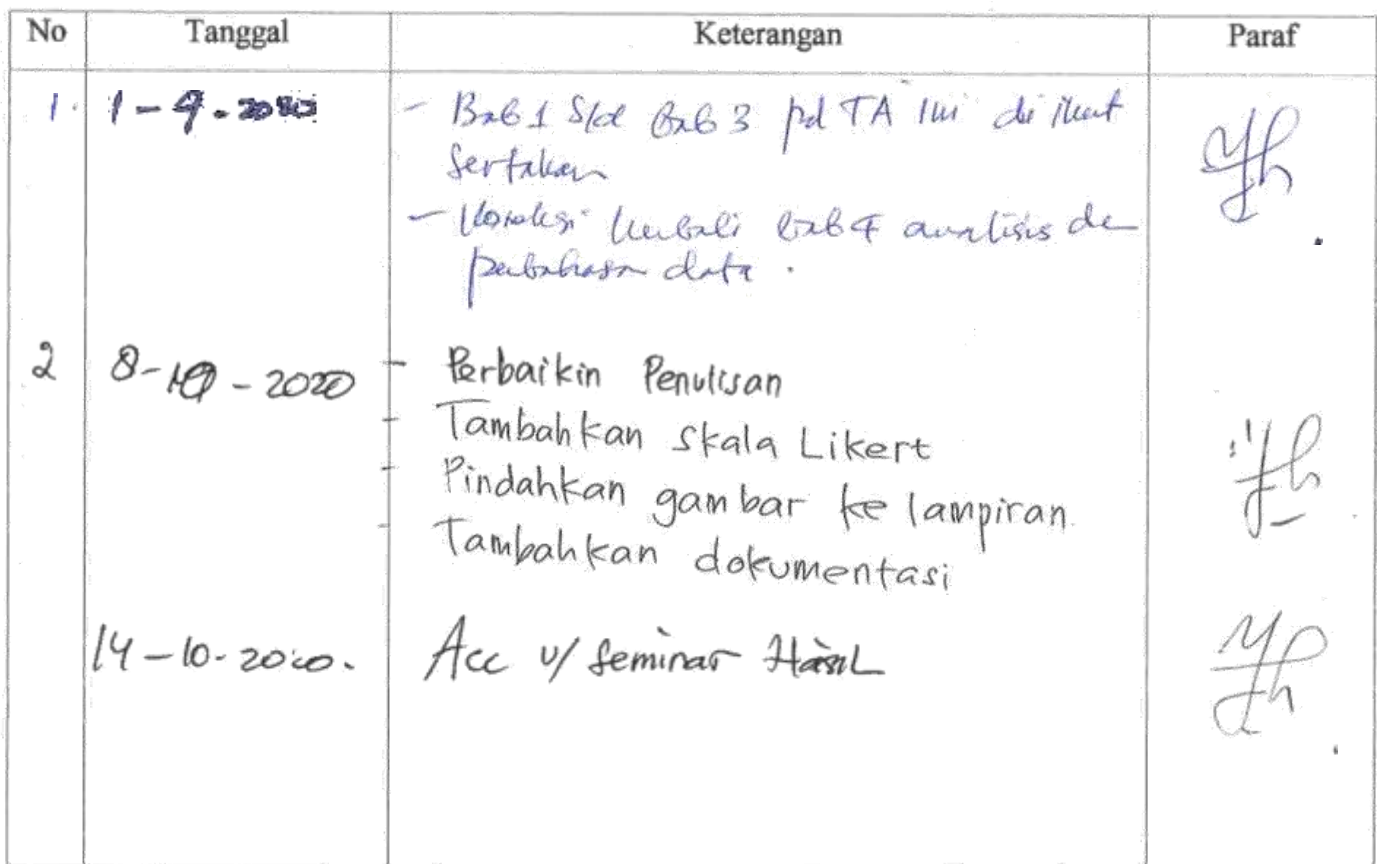 No Tanggal Keterangan Paraf
1. 1 - 9 - 2020 - Bab 1 S/d Bab 3 pd TA Ini di ikut
sertakan
- Koreksi kembali bab 4 analisis dan
pembahasan data.
2 8-10-2020 - Perbaikin Penulisan
- Tambahkan Skala Likert
- Pindahkan gambar ke lampiran.
- Tambahkan dokumentasi
14-10-2020. Acc u/ Seminar Hasil